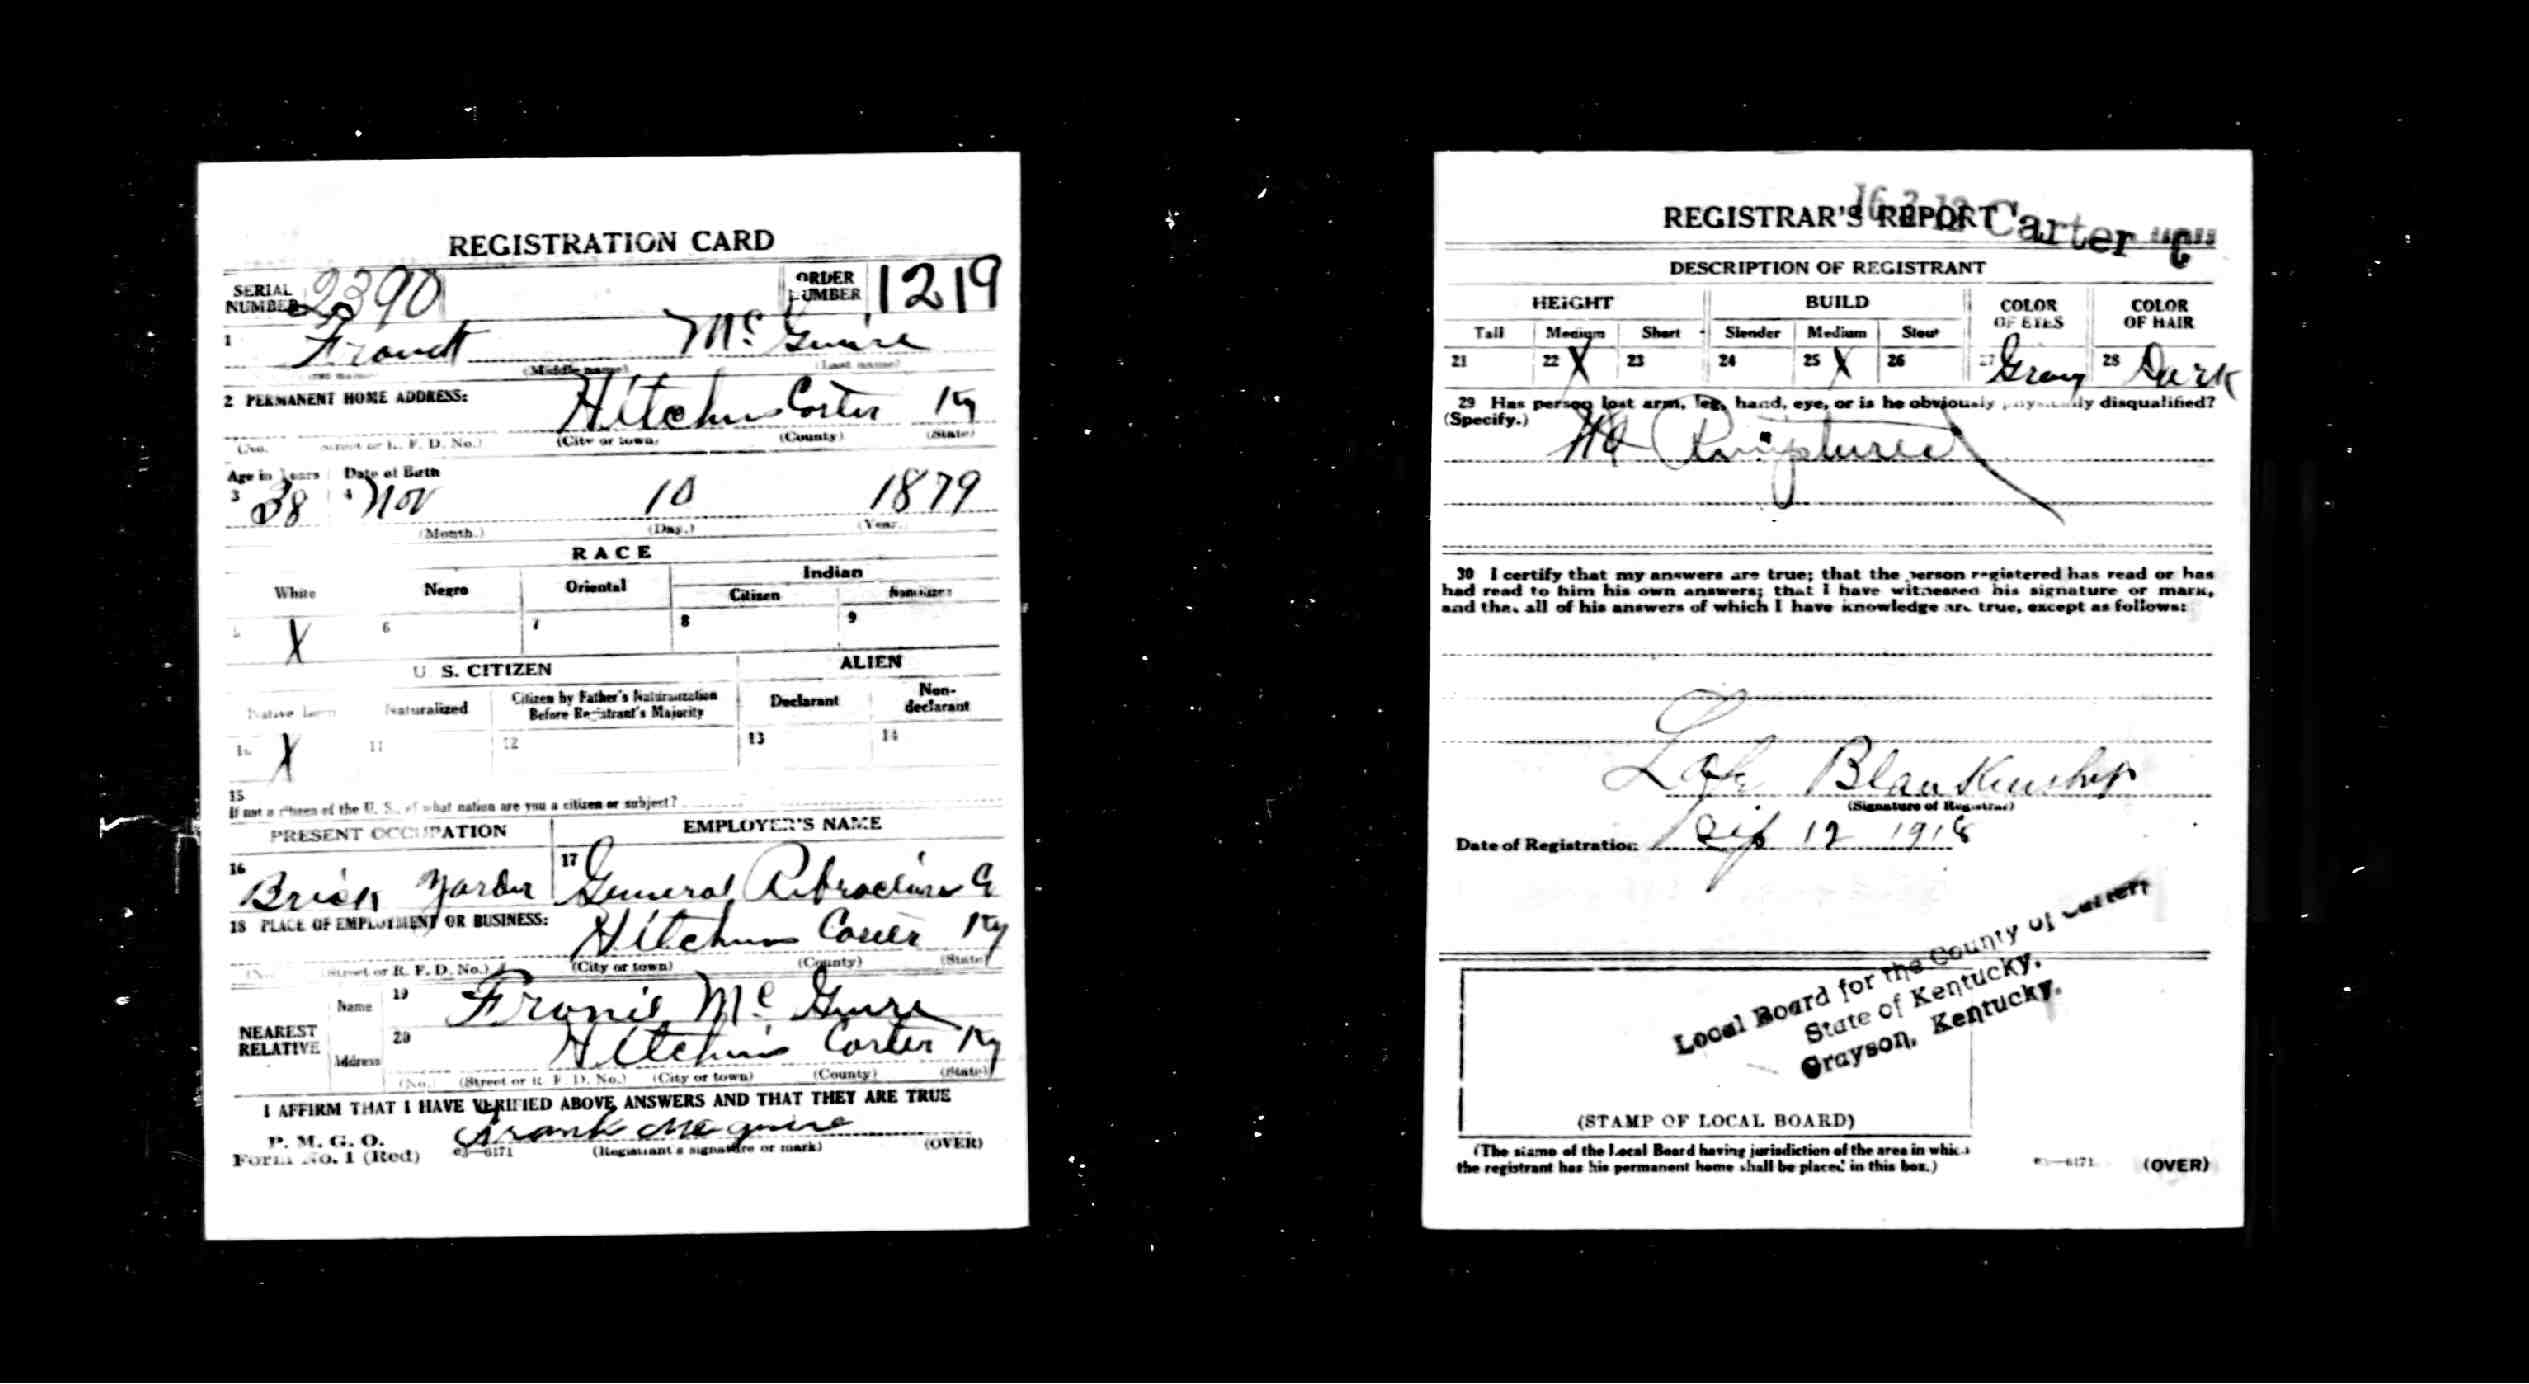 REGISTRATION CARD
SERIAL NUMBER 2390 ORDER NUMBER 1219
1 Frank Mc Guire
(Middle name) (Last name)
2 PERMANENT HOME ADDRESS:
Hitchins Carter Ky
(No.) (Street or R. F. D. No.) (City or town) (County) (State)
Age in Years Date of Birth
3 38 4 Nov 10 1879
(Month.) (Day.) (Year.)
RACE
White Negro Oriental Indian
Citizen Noncitizen
5 X 6 7 8 9
U. S. CITIZEN ALIEN
Native Born Naturalized Citizen by Father's Naturalization Before Registrant's Majority Declarant Non-declarant
10 X 11 12 13 14
15
If not a citizen of the U. S., of what nation are you a citizen or subject?
PRESENT OCCUPATION EMPLOYER'S NAME
16 Brick Yarder 17 General Refractories Co
18 PLACE OF EMPLOYMENT OR BUSINESS:
Hitchins Carter Ky
(No.) (Street or R. F. D. No.) (City or town) (County) (State)
NEAREST RELATIVE
Name 19 Mc Guire
Address 20 Hitchins Carter Ky
(No.) (Street or R. F. D. No.) (City or town) (County) (State)
I AFFIRM THAT I HAVE VERIFIED ABOVE ANSWERS AND THAT THEY ARE TRUE
P. M. G. O.
Form No. 1 (Red) 03—6171 Frank Mc guire
(Registrant's signature or mark) (OVER)
REGISTRAR'S REPORT Carter "C"
DESCRIPTION OF REGISTRANT
HEIGHT BUILD COLOR OF EYES COLOR OF HAIR
Tall Medium Short Slender Medium Stout
21 22 X 23 24 25 X 26 27 Gray 28 Dark
29 Has person lost arm, leg, hand, eye, or is he obviously physically disqualified?
(Specify.)
Ruptured
30 I certify that my answers are true; that the person registered has read or has
had read to him his own answers; that I have witnessed his signature or mark,
and that all of his answers of which I have knowledge are true, except as follows:
Blankenship
(Signature of Registrar)
Date of Registration Sep 12 1918
Local Board for the County of Carter
State of Kentucky,
Grayson, Kentucky.
(STAMP OF LOCAL BOARD)
(The stamp of the Local Board having jurisdiction of the area in which
the registrant has his permanent home shall be placed in this box.)
03—6171 (OVER)